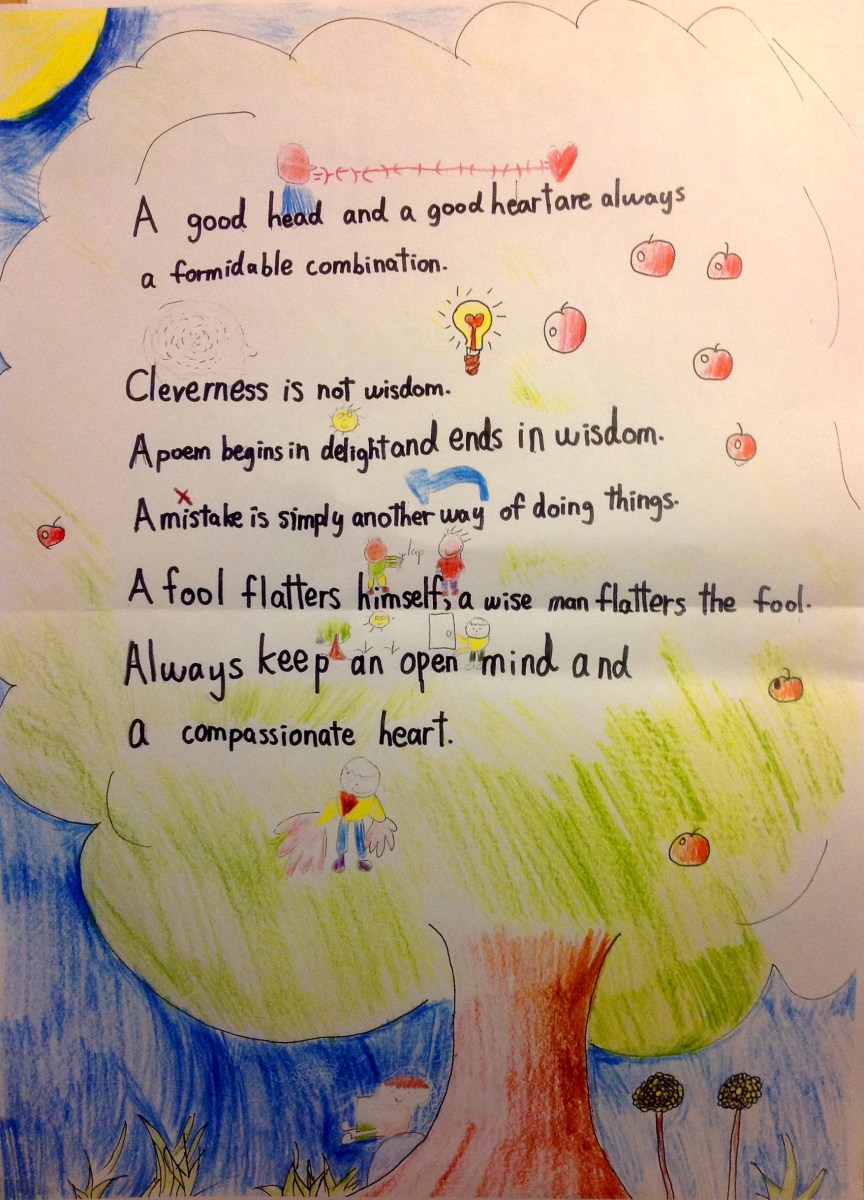 A good head and a good heart are always
a formidable combination.
Cleverness is not wisdom.
A poem begins in delight and ends in wisdom.
A mistake is simply another way of doing things.
A fool flatters himself, a wise man flatters the fool.
Always keep an open mind and
a compassionate heart.